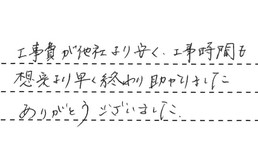 工事費が他社より安く、工事時間も
想定より早く終わり助かりました
ありがとうございました。